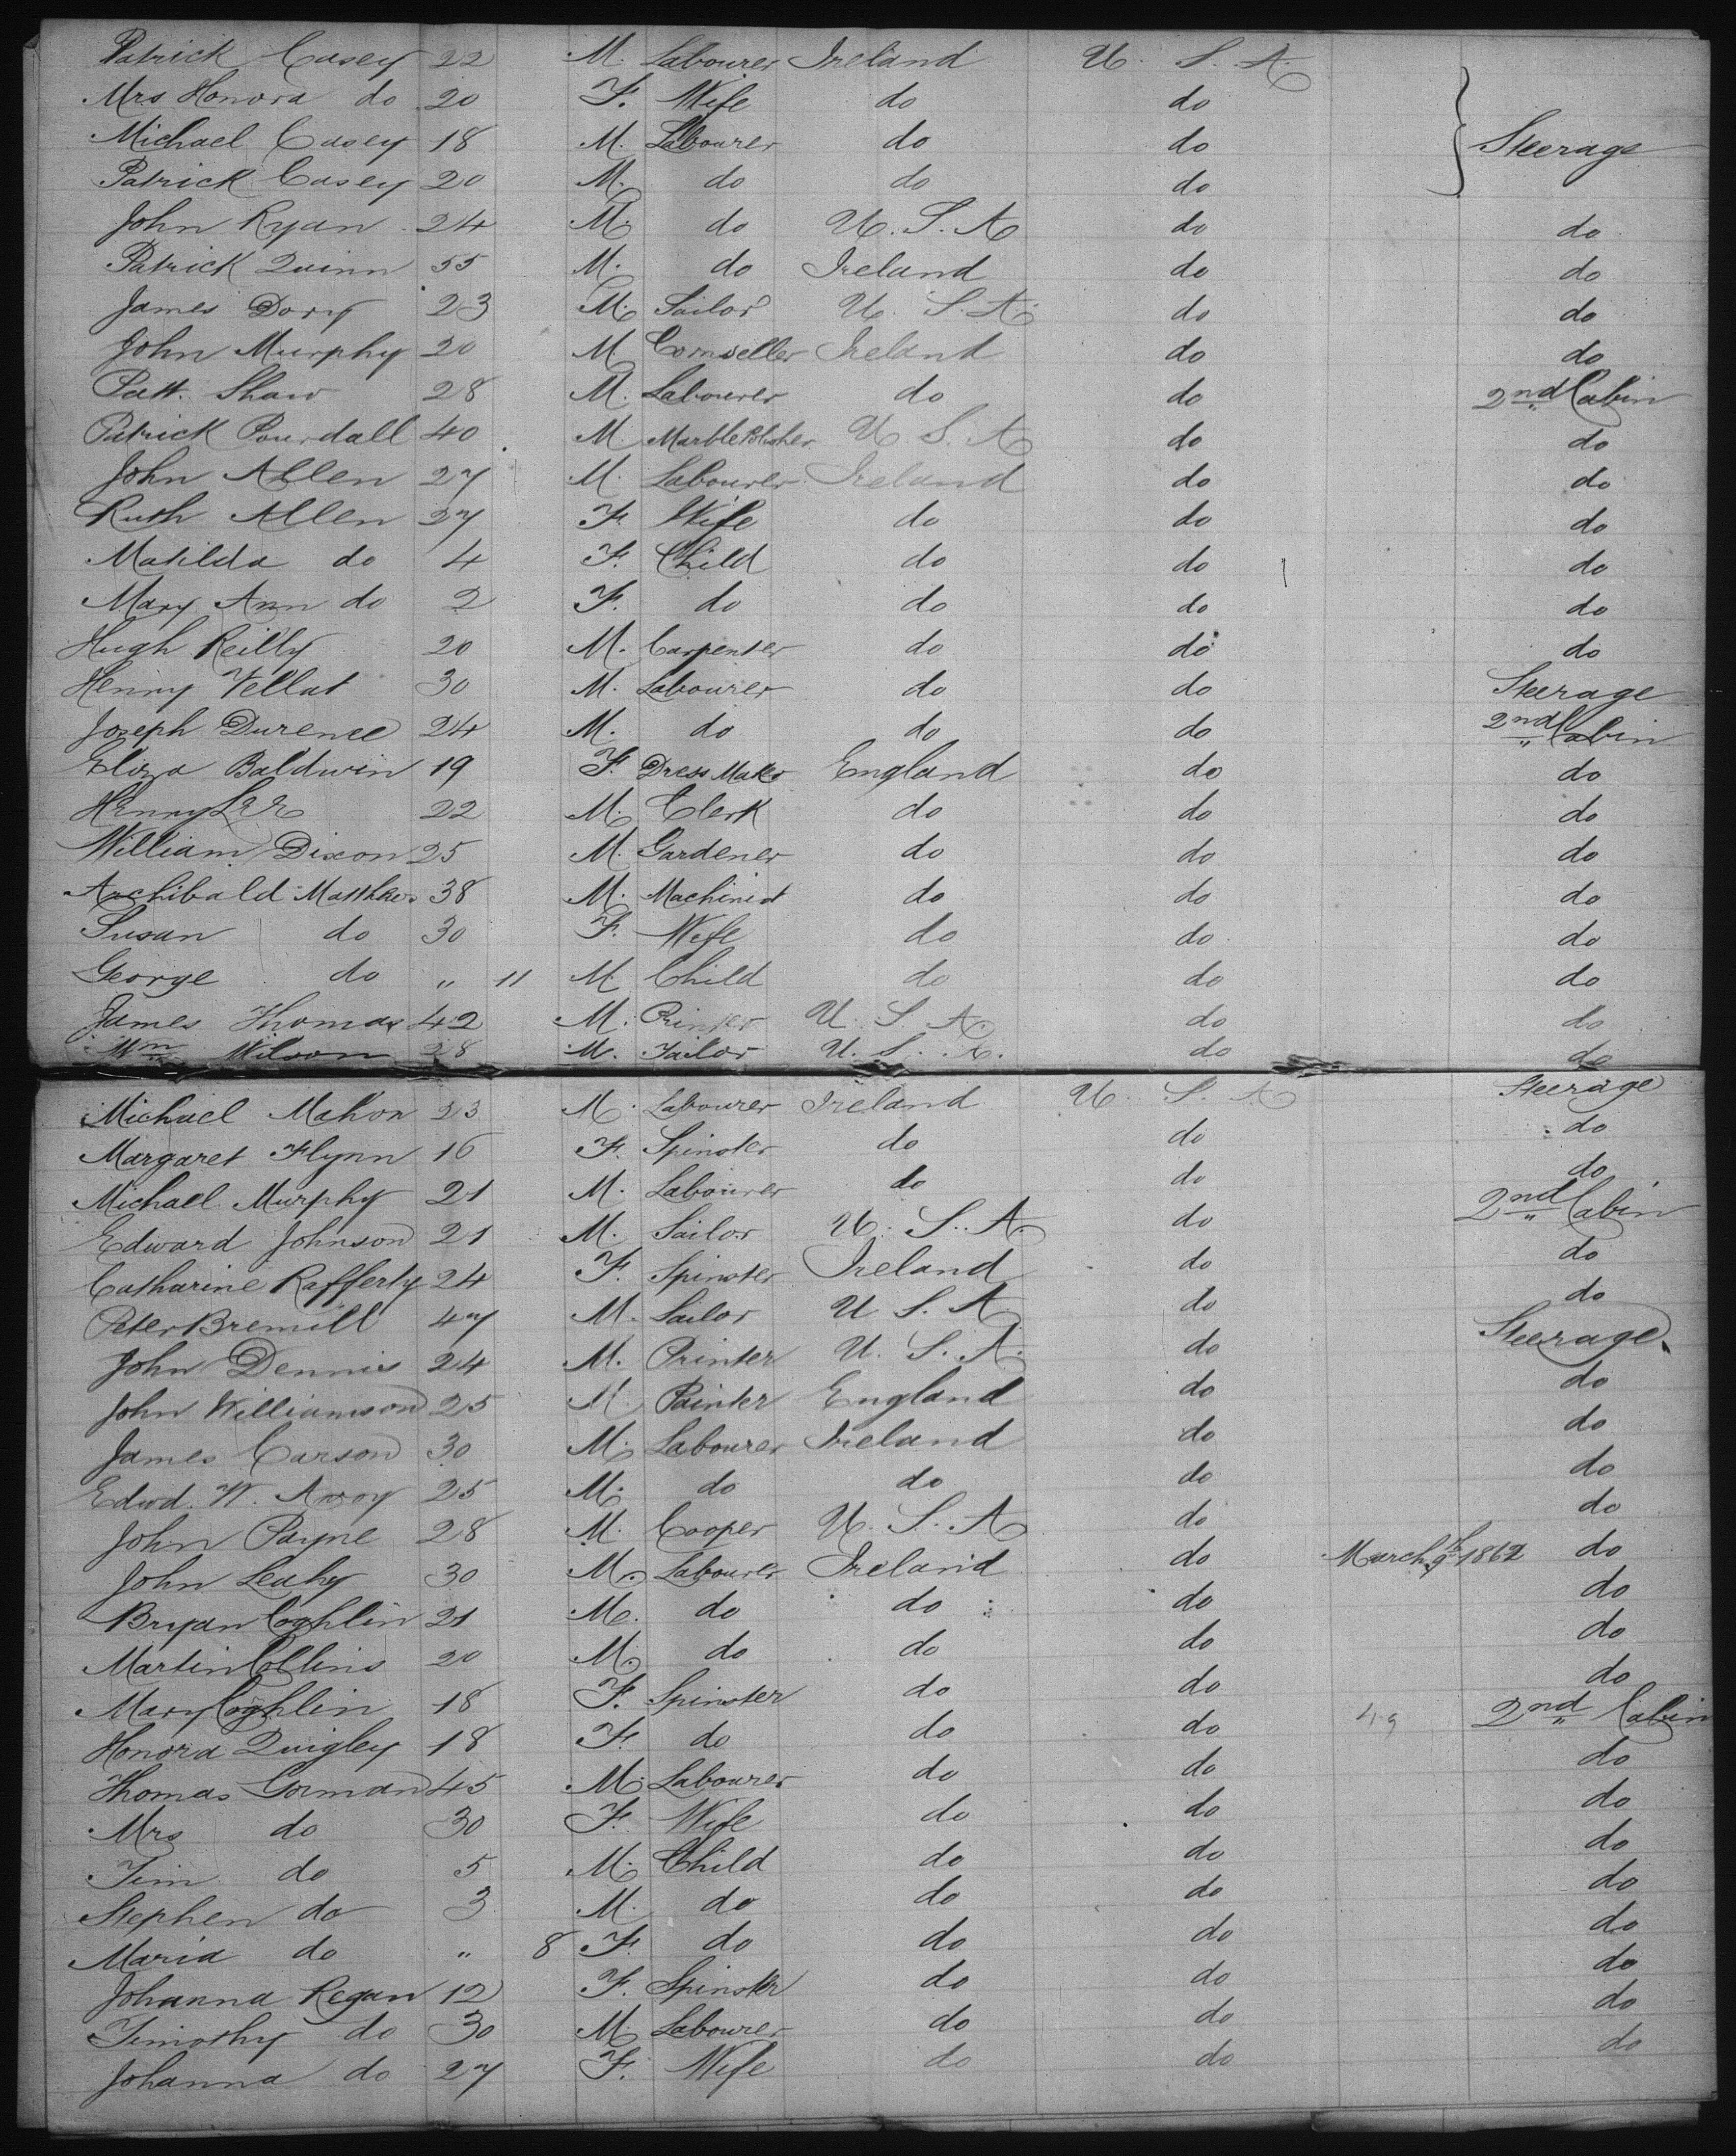 Patrick Casey 22 M. Labourer Ireland U. S. A.
Mrs Honora do 20 F. Wife do do
Michael Casey 18 M. Labourer do do Steerage
Patrick Casey 20 M. do do do
John Ryan 24 M. do U. S. A do do
Patrick Quinn 55 M. do Ireland do do
James Dory 23 M. Sailor U. S. A. do do
John Murphy 20 M Cornseller Ireland do do
Patt. Shaw 28 M. Labourer do do 2nd Cabin
Patrick Pourdall 40 M. Marble Polisher U S. A do do
John Allen 27 M. Labourer Ireland do do
Ruth Allen 27 F. Wife do do do
Matilda do 4 F. Child do do do
Mary Ann do 2 F. do do do do
Hugh Reilly 20 M. Carpenter do do do
Henry Vellat 30 M. Labourer do do Steerage
Joseph Durence 24 M. do do do 2nd Cabin
Eliza Baldwin 19 F. Dress Maker England do do
Henry Lee 22 M. Clerk do do do
William Dixon 25 M. Gardener do do do
Archibald Matthews 38 M. Machinist do do do
Susan do 30 F. Wife do do do
George do " 11 M Child do do do
James Thomas 42 M. Printer U. S. A. do do
Wm Wilson 28 M. Tailor U. S. A. do do
Michael Mahon 23 M. Labourer Ireland U. S. A Steerage
Margaret Flynn 16 F. Spinster do do do
Michael Murphy 21 M. Labourer do do do
Edward Johnson 21 M. Sailor U. S. A. do 2nd Cabin
Catharine Rafferty 24 F. Spinster Ireland do do
Peter Bremill 47 M. Sailor U S. A do do
John Dennis 24 M. Printer U. S. A. do Steerage
John Williamson 25 M. Painter England do do
James Carson 30 M. Labourer Ireland do do
Edwd. W. 25 M. do do do do
John Payne 28 M. Cooper U. S. A do do
John Leahy 30 M. Labourer Ireland do March 9th 1862 do
Bryan Coghlin 21 M. do do do do
Martin Collins 20 M. do do do do
Mary Coghlin 18 F. Spinster do do do
Honora Quigley 18 F. do do do 2nd Cabin
Thomas Gorman 45 M. Labourer do do do
Mrs do 30 F. Wife do do do
Tim do 5 M. Child do do do
Stephen do 3 M. do do do do
Maria do " 8 F. do do do do
Johanna Regan 12 F. Spinster do do do
Timothy do 30 M. Labourer do do do
Johanna do 27 F. Wife do do do